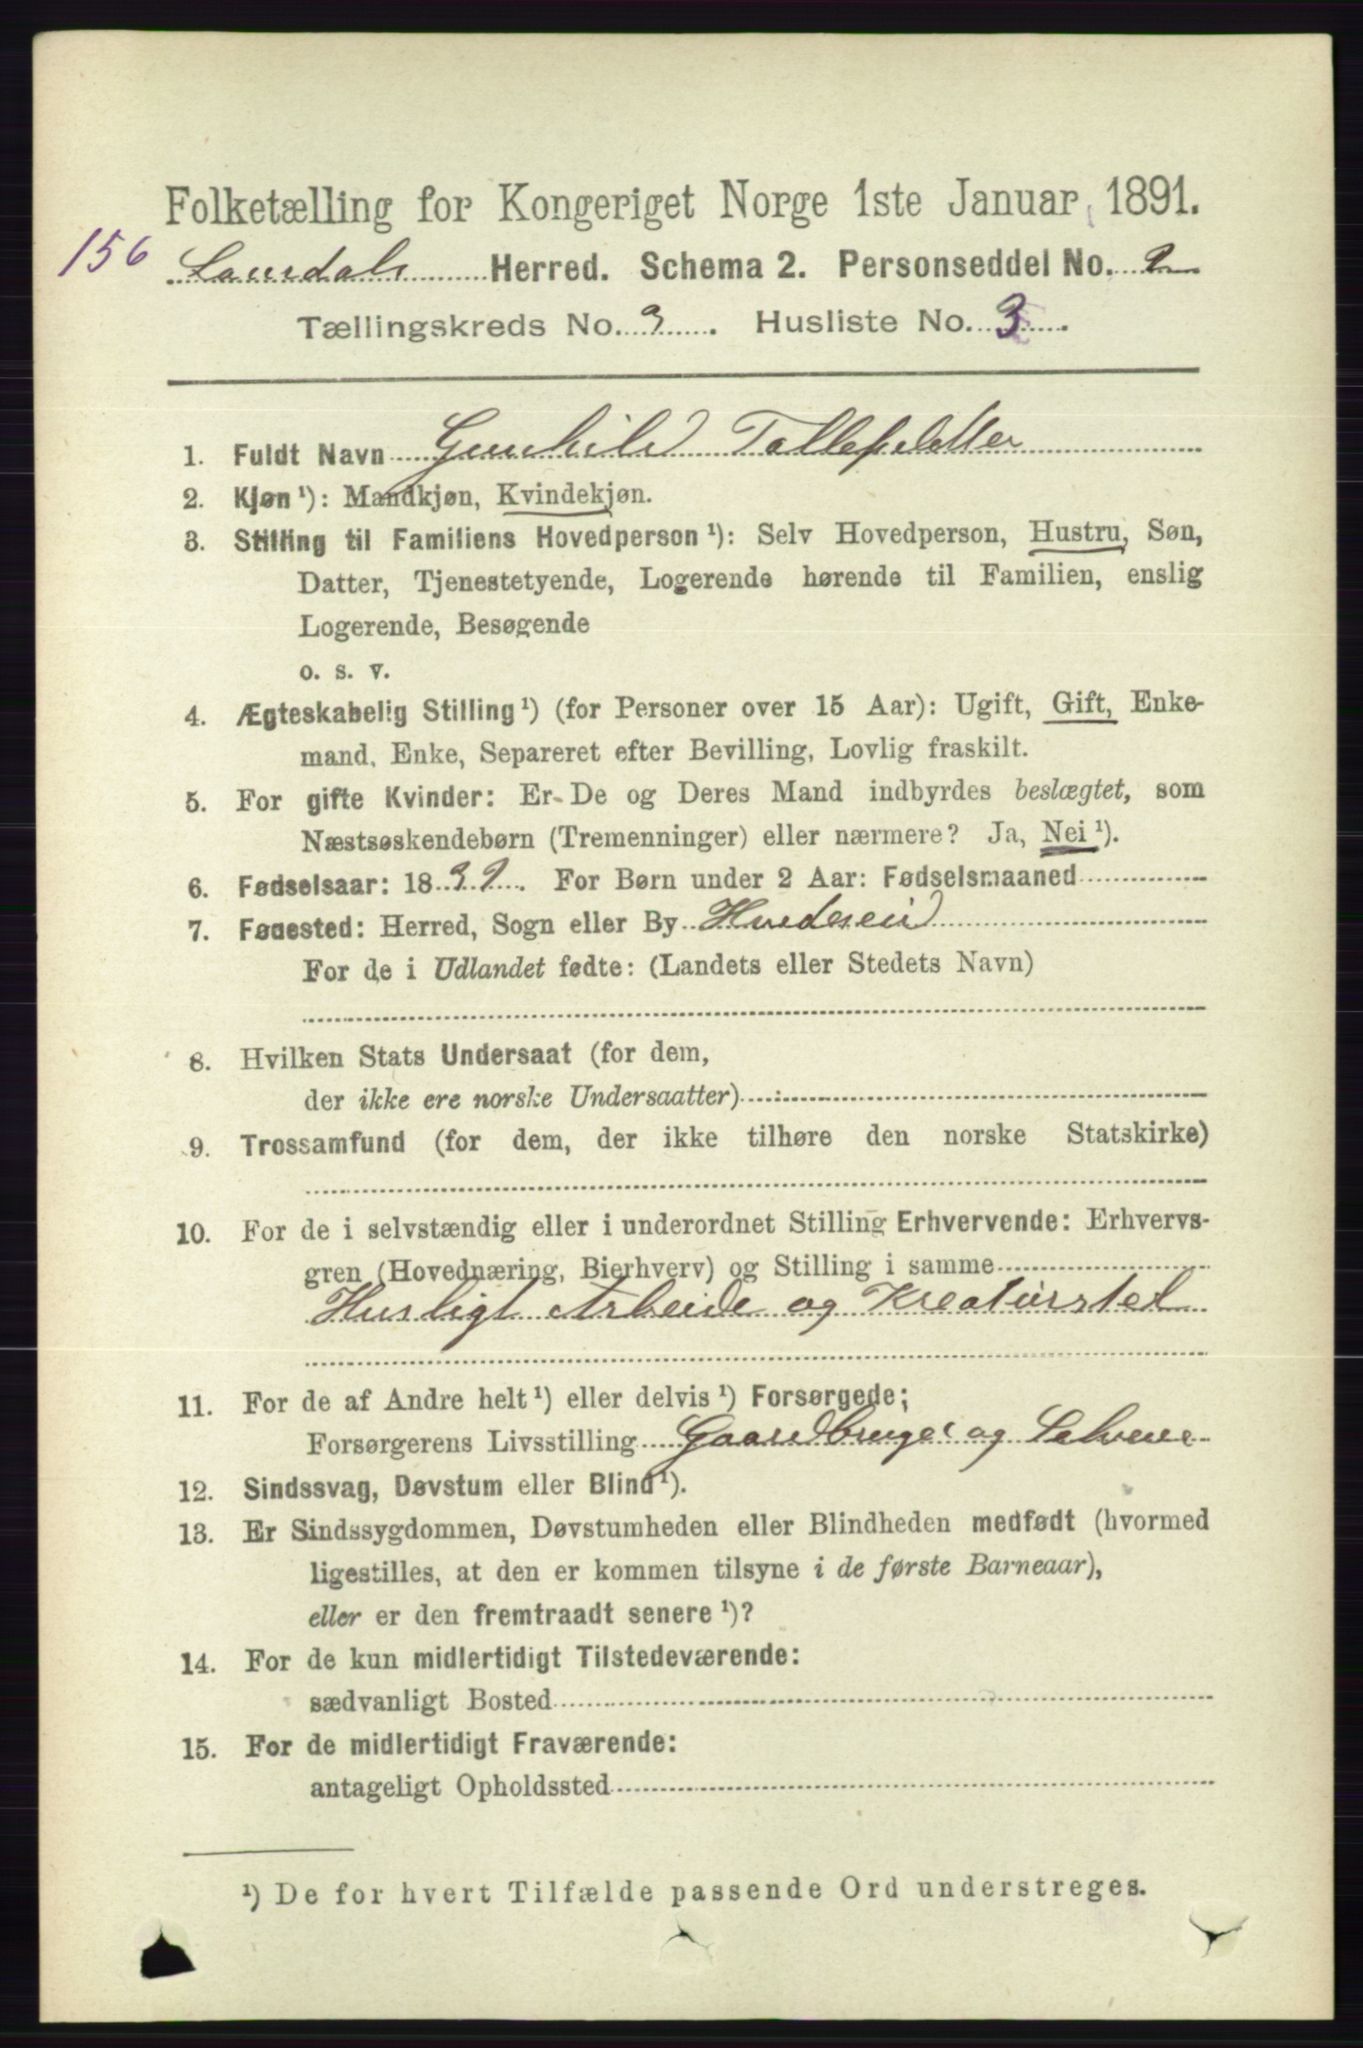 Folketælling for Kongeriget Norge 1ste Januar 1891.
156
Laurdals Herred. Schema 2. Personseddel No. 2
Tællingskreds No. 3. Husliste No. 3.
1. Fuldt Navn Gunhild
2. Kjøn ¹): Mandkjøn, Kvindekjøn.
3. Stilling til Familiens Hovedperson ¹): Selv Hovedperson, Hustru, Søn,
Datter, Tjenestetyende, Logerende hørende til Familien, enslig
Logerende, Besøgende
o. s. v.
4. Ægteskabelig Stilling ¹) (for Personer over 15 Aar): Ugift, Gift, Enke-
mand, Enke, Separeret efter Bevilling, Lovlig fraskilt.
5. For gifte Kvinder: Er De og Deres Mand indbyrdes beslægtet, som
Næstsøskendebørn (Tremenninger) eller nærmere? Ja, Nei ¹).
6. Fødselsaar: 1839. For Børn under 2 Aar: Fødselsmaaned
7. Fødested: Herred, Sogn eller By Hvideseid
For de i Udlandet fødte: (Landets eller Stedets Navn)
8. Hvilken Stats Undersaat (for dem,
der ikke ere norske Undersaatter)
9. Trossamfund (for dem, der ikke tilhøre den norske Statskirke)
10. For de i selvstændig eller i underordnet Stilling Erhvervende: Erhvervs-
gren (Hovednæring, Bierhverv) og Stilling i samme
Husligt Arbeide og Kreaturstel
11. For de af Andre helt ¹) eller delvis ¹) Forsørgede;
Forsørgerens Livsstilling Gaardbruger og Selveier
12. Sindssvag, Døvstum eller Blind ¹).
13. Er Sindssygdommen, Døvstumheden eller Blindheden medfødt (hvormed
ligestilles, at den er kommen tilsyne i de første Barneaar),
eller er den fremtraadt senere ¹)?
14. For de kun midlertidigt Tilstedeværende:
sædvanligt Bosted
15. For de midlertidigt Fraværende:
antageligt Opholdssted
¹) De for hvert Tilfælde passende Ord understreges.